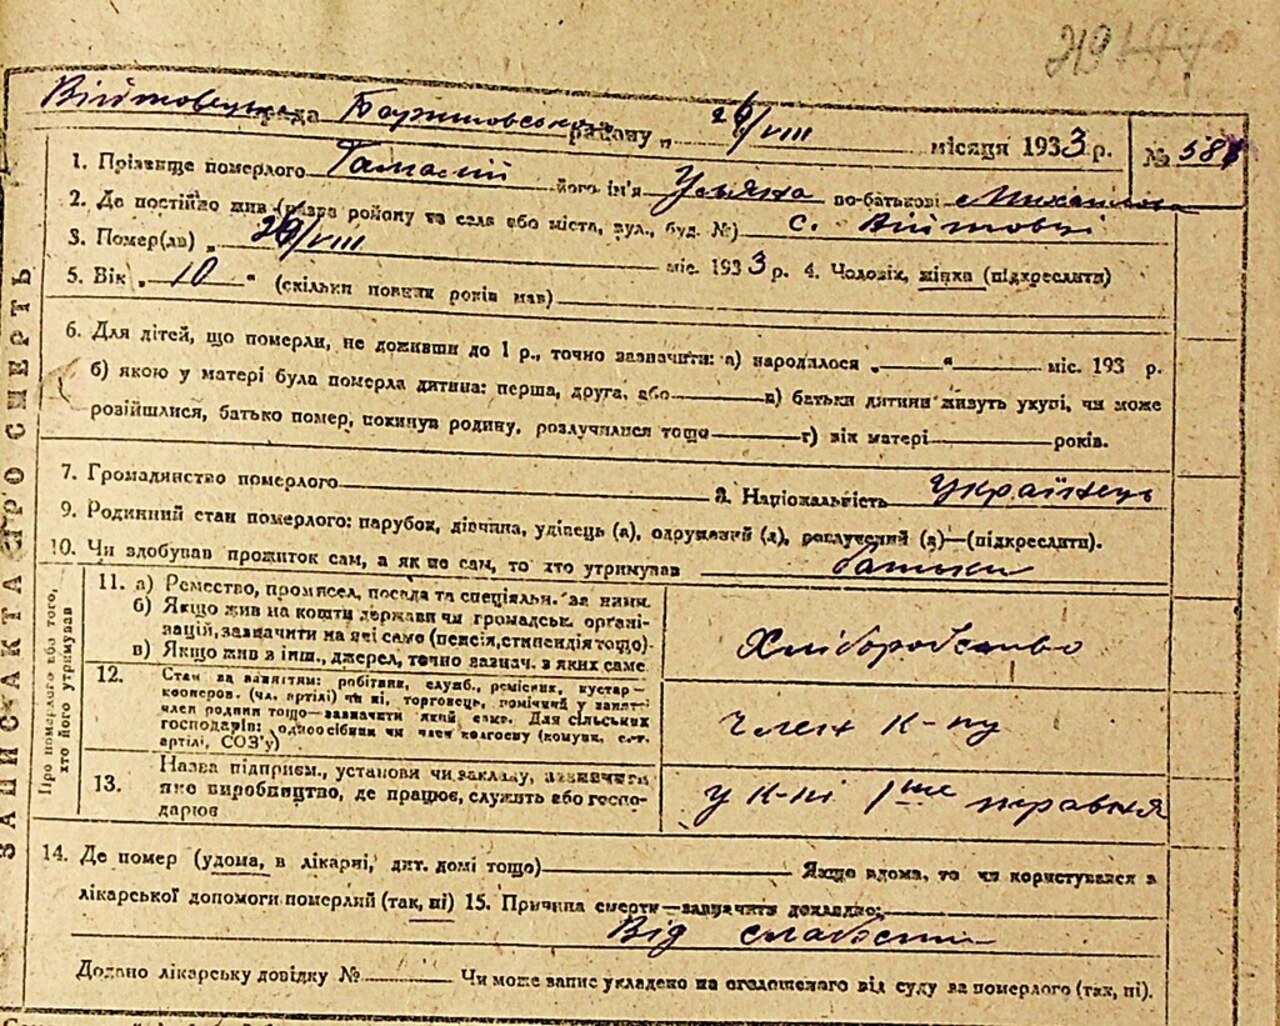 Війтовецька рада Баришовського району „ 26/VIII місяця 1933 р. № 58
1. Прізвище померлого Гамалій його ім'я Уляна по-батькові Михайлова
2. Де постійно жив (назва району та села або міста, вул., буд. №) с. Війтовці
3. Помер(ла) „ 26/VIII міс. 1933 р. 4. Чоловік, жінка (підкреслити)
5. Вік „ 10 " (скільки повних років мав)
6. Для дітей, що померли, не доживши до 1 р., точно зазначити: а) народилося „ " міс. 193 р.
б) якою у матері була померла дитина: перша, друга, або в) батьки дитини живуть укупі, чи може
розійшлися, батько помер, покинув родину, розлучилися тощо г) вік матері років.
7. Громадянство померлого 8. Національність Українець
9. Родинний стан померлого: парубок, дівчина, удівець (а), одружений (а), розлучений (а)—(підкреслити).
10. Чи здобував прожиток сам, а як не сам, то хто утримував батьки
Про померлого або того, хто його утримував
11. а) Ремество, промисел, посада та спеціяльн. за ними
б) Якщо жив на кошти держави чи громадськ. органі-
зацій, зазначити на які саме (пенсія, стипендія тощо).
в) Якщо жив з інш., джерел, точно зазнач. з яких саме
Хліборобство
12. Стан за заняттям: робітник, служб., ремісник, кустар—
кооперов. (чл. артілі) чи ні, торговець, помічний у занят.
член родини тощо—зазначити який саме. Для сільських
господарів: одноосібник чи член колгоспу (комуни, с.-г.
артілі, СОЗ'у)
член к-пу
13. Назва підприєм., установи чи закладу, зазначити
яке виробництво, де працює, служить або госпо-
дарює
у к-пі 1ше травня
14. Де помер (удома, в лікарні, дит. домі тощо) Якщо вдома, то чи користувався з
лікарської допомоги померлий (так, ні) 15. Причина смерти—зазначити докладно:
Від слабости
Додано лікарську довідку № Чи може запис укладено на оголошеного від суду за померлого (так, ні).
ЗАПИС АКТА ПРО СМЕРТЬ